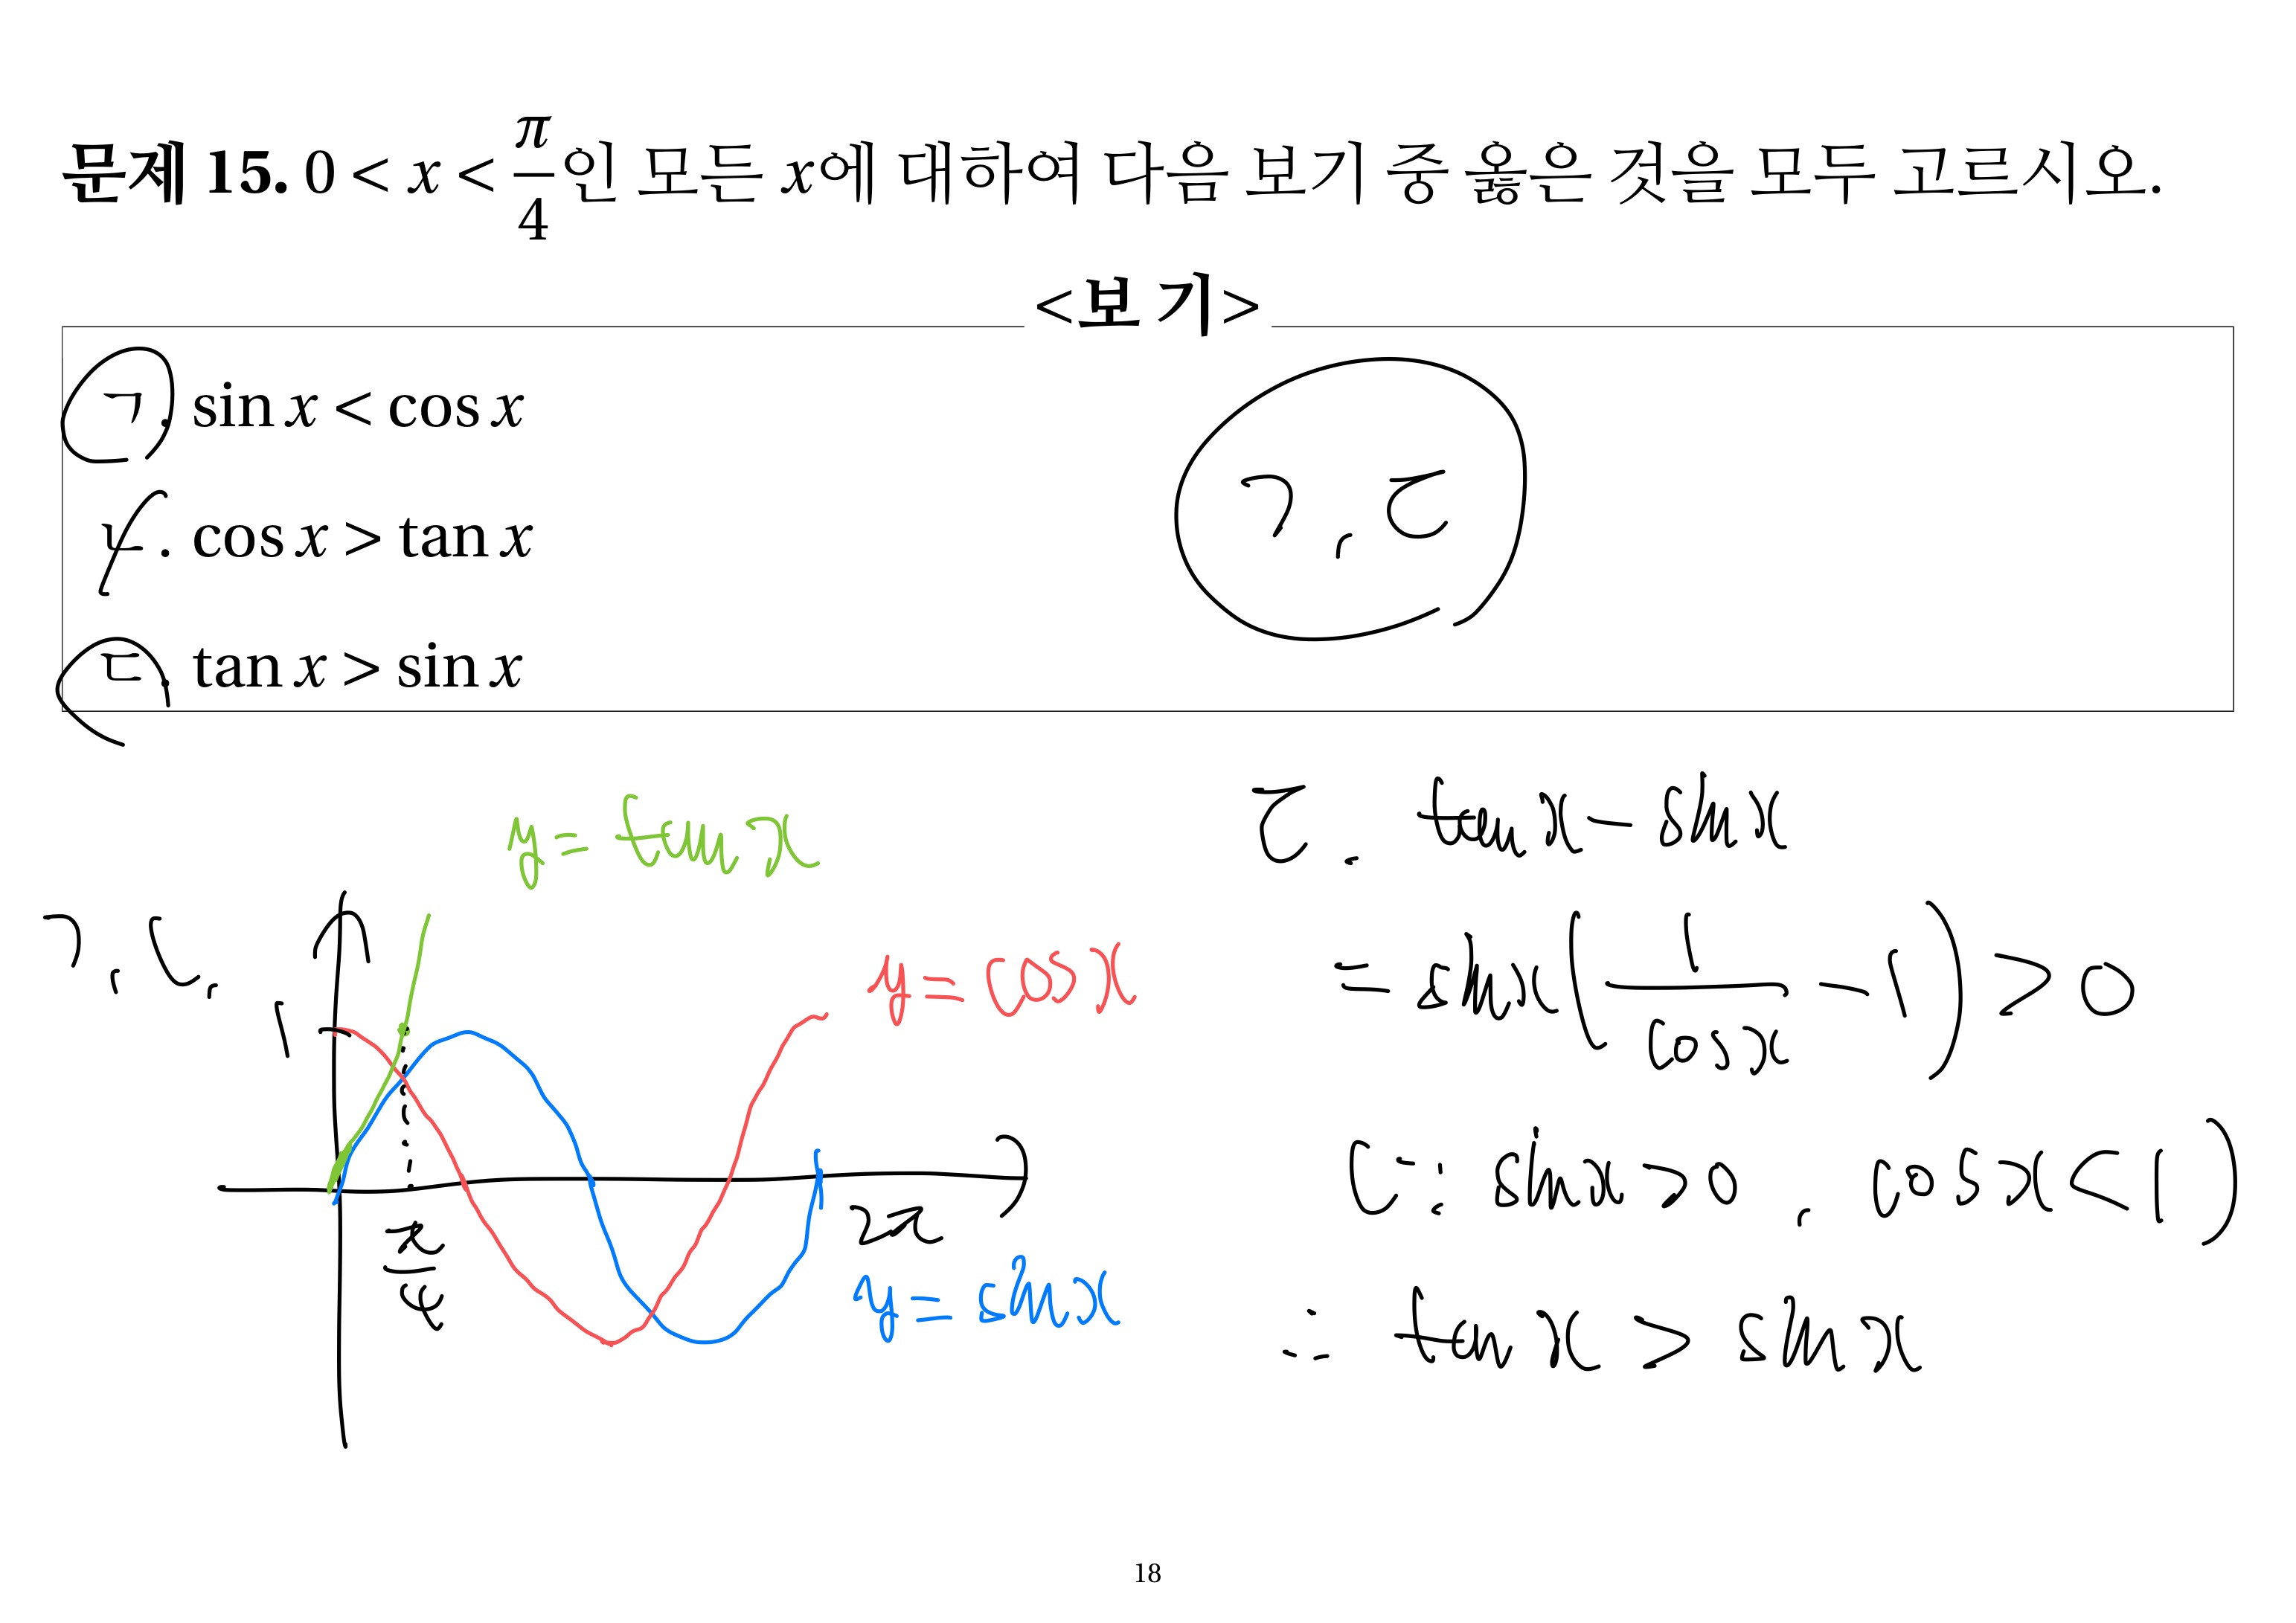 문제 15. 0 < x < π/4 인 모든 x에 대하여 다음 보기 중 옳은 것을 모두 고르시오.
<보 기>
ㄱ. sin x < cos x
ㄴ. cos x > tan x
ㄷ. tan x > sin x
ㄱ, ㄷ
ㄱ, ㄴ.
y = tan x
y = cos x
1
π/4
2π
y = sin x
ㄷ. tan x − sin x
= sin x (1/cos x − 1) > 0
(∵ sin x > 0, cos x < 1)
∴ tan x > sin x
18